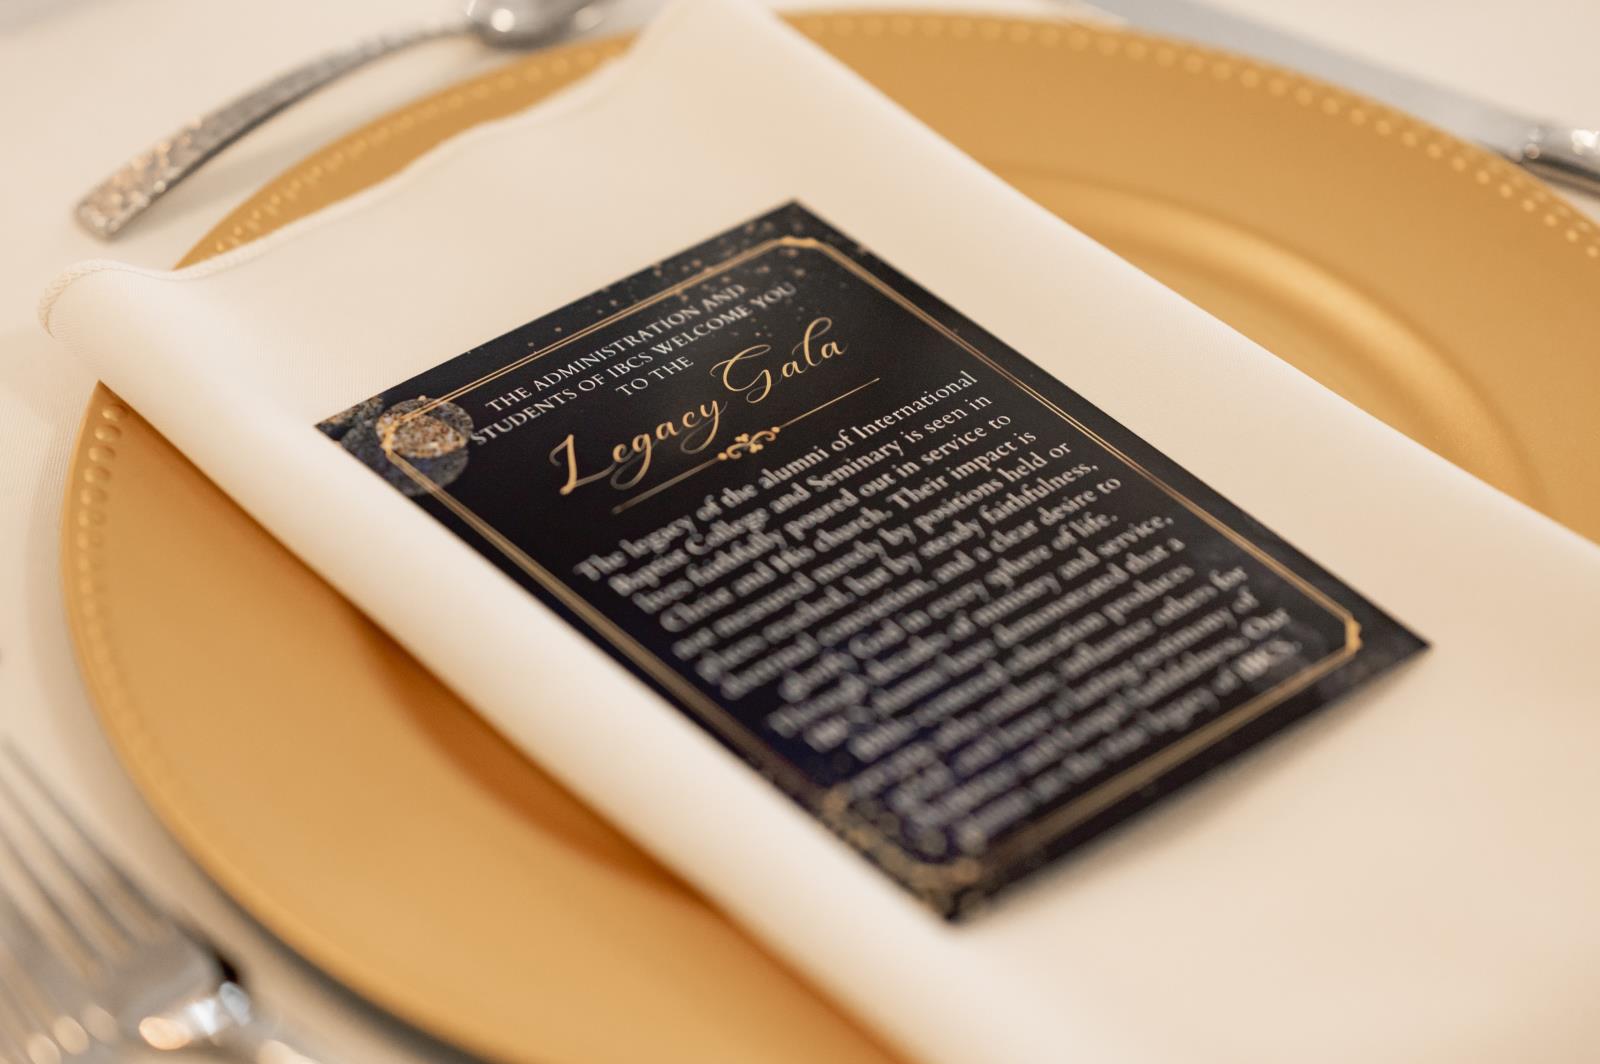 THE ADMINISTRATION AND
STUDENTS OF IBCS WELCOME YOU
TO THE
Legacy Gala
The legacy of the alumni of International
Baptist College and Seminary is seen in
lives faithfully poured out in service to
Christ and His church. Their impact is
not measured merely by positions held or
places reached, but by steady faithfulness,
personal conviction, and a clear desire to
glorify God in every sphere of life.
Through decades of ministry and service,
IBCS alumni have demonstrated that a
education produces
influence others for
a lasting testimony of
faithfulness. Our
legacy of IBCS.